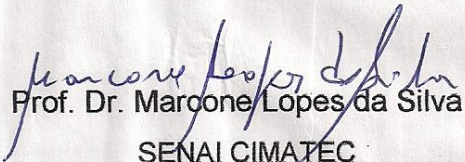 Marcone Lopes da Silva
Prof. Dr. Marcone Lopes da Silva
SENAI CIMATEC